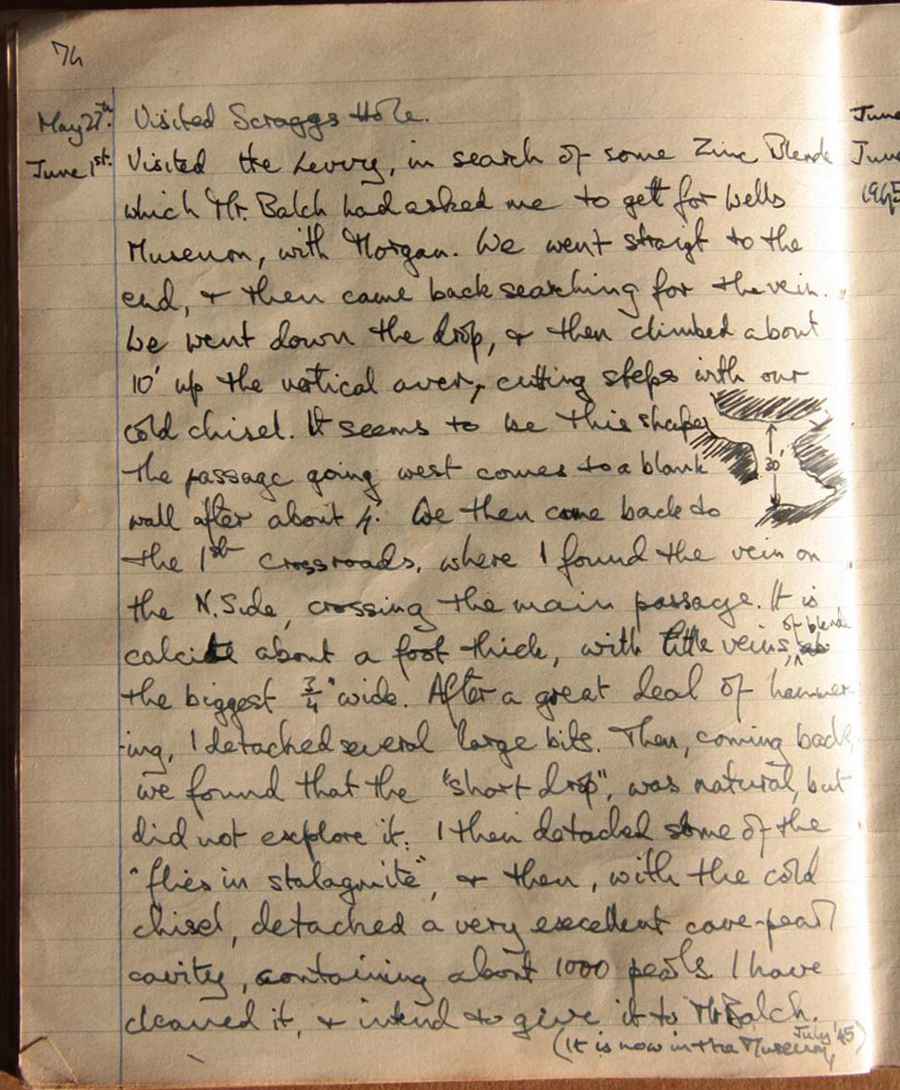 74
May 27th. Visited Scraggs Hole.
June 1st. Visited the Levvy, in search of some Zinc Blende
which Mr. Balch had asked me to get for Wells
Museum, with Morgan. We went straigt to the
end, & then came back searching for the vein.
We went down the drop, & then climbed about
10' up the vertical aven, cutting steps with our
cold chisel. It seems to be this shape
30'
The passage going west comes to a blank
wall after about 4'. We then came back to
the 1st crossroads, where I found the vein on
the N. Side, crossing the main passage. It is
calcite about a foot thick, with little veins, of blende
the biggest 3/4" wide. After a great deal of hammer-
-ing, I detached several large bits. Then, coming back,
we found that the "short drop", was natural, but
did not explore it. I then detached some of the
"flies in stalagmite", & then, with the cold
chisel, detached a very excellent cave-pearl
cavity, containing about 1000 pearls. I have
cleaned it, & intend to give it to Mr Balch.
(It is now in the Museum, July '45)
June
June
1945